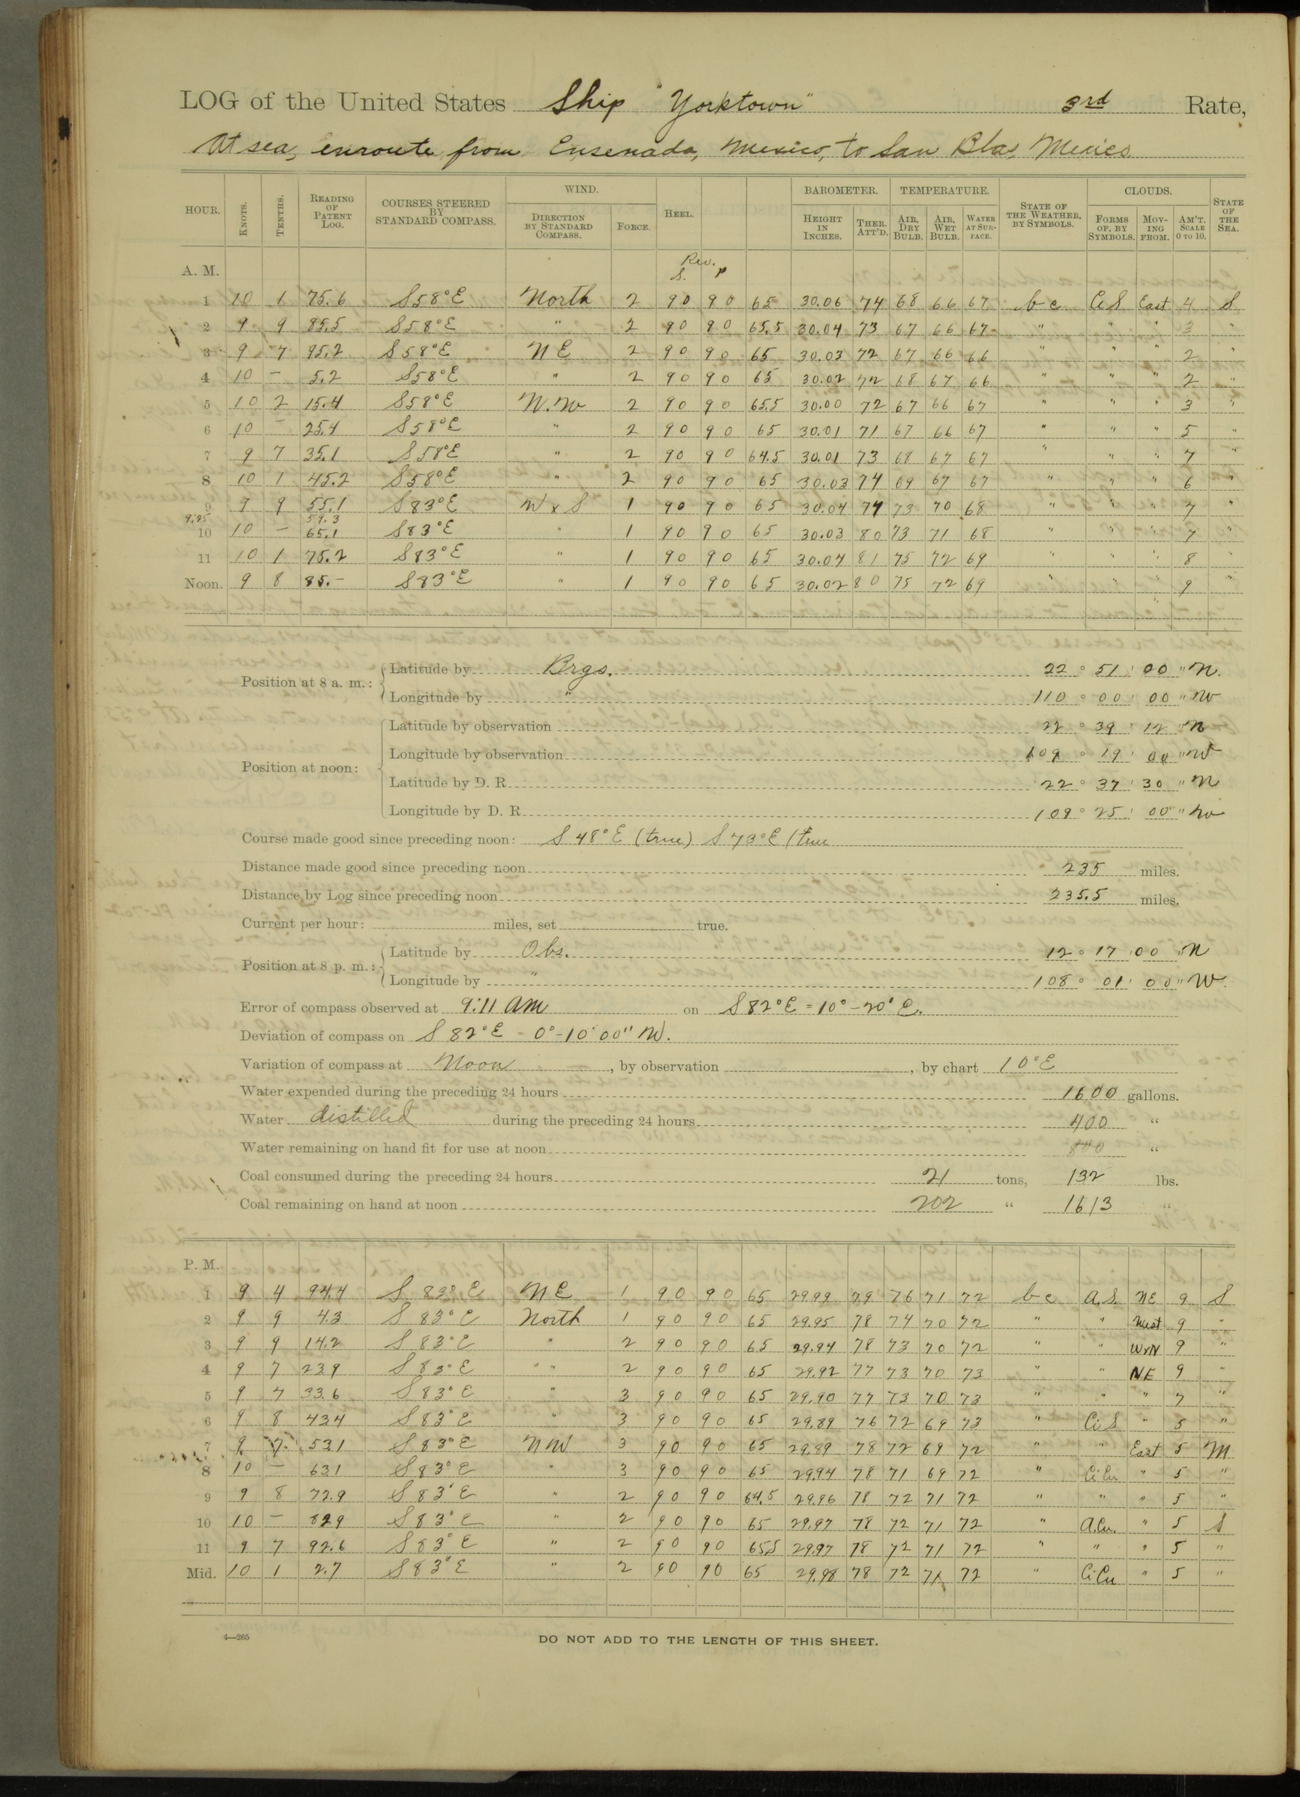 LOG of the United States Ship "Yorktown" 3rd Rate,
At sea, enroute from Ensenada, Mexico, to San Blas Mexico
HOUR. KNOTS. TENTHS. READING OF PATENT LOG. COURSES STEERED BY STANDARD COMPASS. WIND. DIRECTION BY STANDARD COMPASS. FORCE. HEEL. BAROMETER. HEIGHT IN INCHES. THER. ATT'D. TEMPERATURE. AIR, DRY BULB. AIR, WET BULB. WATER AT SURFACE. STATE OF THE WEATHER, BY SYMBOLS. CLOUDS. FORMS OF, BY SYMBOLS. MOVING FROM. AM'T. SCALE 0 TO 10. STATE OF THE SEA.
A. M. Rev. S. P
1 10 1 75.6 S58°E North 2 90 90 65 30.06 74 68 66 67 bc Ci S East 4 S
2 9 9 85.5 S58°E " 2 90 90 65.5 30.04 73 67 66 67 " " " 3 "
3 9 7 95.2 S58°E NE 2 90 90 65 30.03 72 67 66 66 " " " 2 "
4 10 – 5.2 S58°E " 2 90 90 65 30.02 72 68 67 66 " " " 2 "
5 10 2 15.4 S58°E N.W 2 90 90 65.5 30.00 72 67 66 67 " " " 3 "
6 10 – 25.4 S58°E " 2 90 90 65 30.01 71 67 66 67 " " " 5 "
7 9 7 35.1 S58°E " 2 90 90 64.5 30.01 73 68 67 67 " " " 7 "
8 10 1 45.2 S58°E " 2 90 90 65 30.03 74 69 67 67 " " " 6 "
9 9 9 55.1 S83°E W x S 1 90 90 65 30.04 74 73 70 68 " " " 7 "
59.3
10 10 – 65.1 S83°E " 1 90 90 65 30.03 80 73 71 68 " " " 7 "
11 10 1 75.2 S83°E " 1 90 90 65 30.04 81 75 72 69 " " " 8 "
Noon. 9 8 85.– S83°E " 1 90 90 65 30.02 80 75 72 69 " " " 9 "
Position at 8 a. m.: Latitude by Brgs. 22° 51' 00" N.
Longitude by " 110° 00' 00" W
Position at noon: Latitude by observation 22° 39' 12" N
Longitude by observation 109° 19' 00" W
Latitude by D. R. 22° 37' 30" N
Longitude by D. R. 109° 25' 00" W
Course made good since preceding noon: S 48°E (true) S 73°E (true
Distance made good since preceding noon 235 miles.
Distance by Log since preceding noon 235.5 miles.
Current per hour: miles, set true.
Position at 8 p. m.: Latitude by Obs. 12° 17' 00" N
Longitude by " 108° 01' 00" W.
Error of compass observed at 9:11 am on S 82°E = 10°–20' E.
Deviation of compass on S 82°E – 0°–10'00" W.
Variation of compass at Noon, by observation , by chart 10°E
Water expended during the preceding 24 hours 1600 gallons.
Water distilled during the preceding 24 hours 400 "
Water remaining on hand fit for use at noon "
Coal consumed during the preceding 24 hours 21 tons, 132 lbs.
Coal remaining on hand at noon 202 " 1613 "
P. M.
1 9 4 94.4 S 83°E NE 1 90 90 65 29.99 79 76 71 72 bc A.S. NE 9 S
2 9 9 4.3 S 83°E North 1 90 90 65 29.95 78 74 70 72 " " West 9 "
3 9 9 14.2 S 83°E " 2 90 90 65 29.94 78 73 70 72 " " WxN 9 "
4 9 7 23.9 S 83°E " 2 90 90 65 29.92 77 73 70 73 " " NE 9 "
5 9 7 33.6 S 83°E " 3 90 90 65 29.90 77 73 70 73 " " " 7 "
6 9 8 43.4 S 83°E " 3 90 90 65 29.89 76 72 69 73 " Ci S " 5 "
7 9 7 53.1 S 83°E NW 3 90 90 65 29.89 78 72 69 72 " " East 5 M
8 10 – 63.1 S 83°E " 3 90 90 65 29.94 78 71 69 72 " Ci Cu " 5 "
9 9 8 72.9 S 83°E " 2 90 90 64.5 29.96 78 72 71 72 " " " 5 "
10 10 – 82.9 S 83°E " 2 90 90 65 29.97 78 72 71 72 " A.Cu. " 5 S
11 9 7 92.6 S 83°E " 2 90 90 65.5 29.97 78 72 71 72 " " " 5 "
Mid. 10 1 2.7 S 83°E " 2 90 90 65 29.98 78 72 71 72 " Ci Cu " 5 "
4—265
DO NOT ADD TO THE LENGTH OF THIS SHEET.